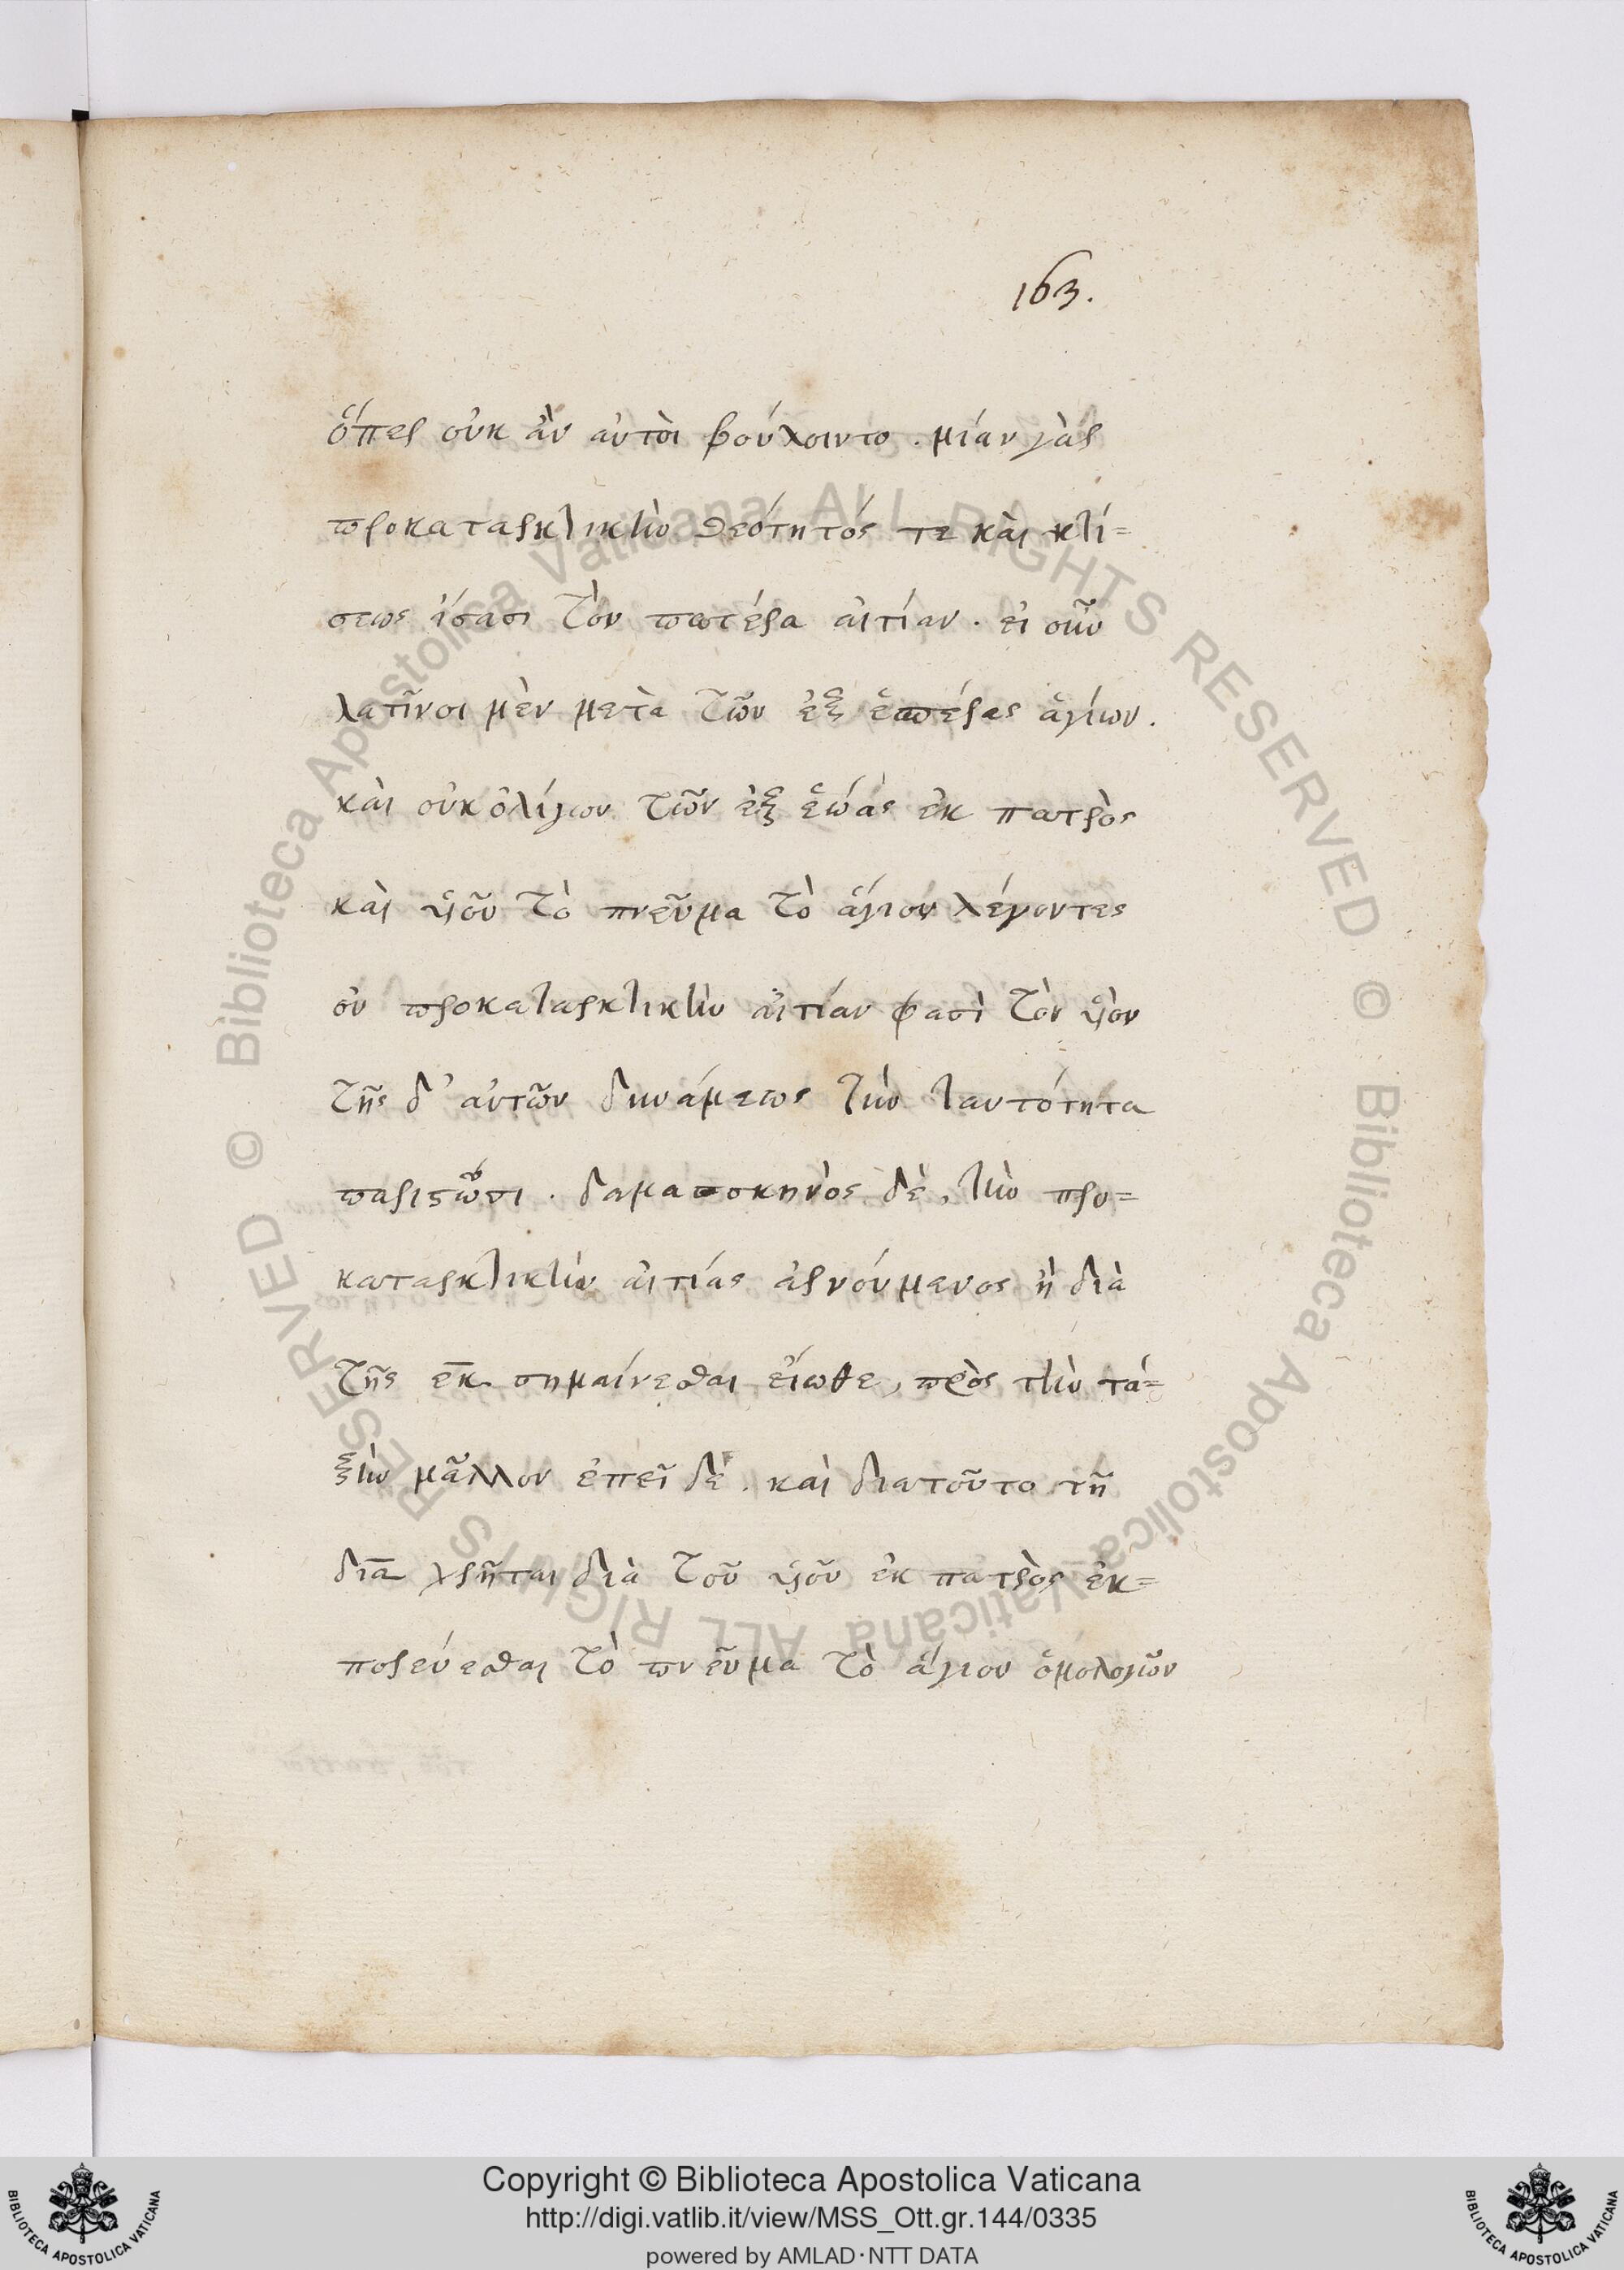 163.
ὅπερ οὐκ ἂν αὐτὸι βούλοιντο . μίαν γὰρ
προκαταρκλικὴν θεότητός τε κὰι κτί=
σεως ἴσασι τὸν πατέρα ἀιτίαν . ἐι οὖν
λατῖνοι μὲν μετὰ τῶν ἐξ ἑσπέρας ἁγίων .
κὰι οὐκ ὀλίγων τῶν ἐξ ἑώας ἐκ πατρὸς
κὰι ὑιοῦ τὸ πνεῦμα τὸ ἅγιον λέγοντες
οὐ προκαταρκτικὴν ἀιτίαν φασὶ τὸν ὑιὸν
τῆς δ' αὐτῶν δυνάμεως τὴν ταυτότητα
παριστῶσι . δαμασκηνὸς δὲ, τὴν προ=
καταρκτικὴν ἀιτίας ἀρνούμενος ἣ διὰ
τῆς ἐκ σημαίνεσθαι εἴωθε, πρὸς τὴν τά=
ξιν μᾶλλον ἐπεῖδε . καὶ διατοῦτο τῆ
διὰ χρῆται διὰ τοῦ ὑιοῦ ἐκ πατρὸς ἐκ=
πορεύεσθαι τὸ πνεῦμα τὸ ἅγιον ὁμολογῶν
Copyright © Biblioteca Apostolica Vaticana
http://digi.vatlib.it/view/MSS_Ott.gr.144/0335
powered by AMLAD·NTT DATA
BIBLIOTECA APOSTOLICA VATICANA
BIBLIOTECA APOSTOLICA VATICANA
© Biblioteca Apostolica Vaticana ALL RIGHTS RESERVED
© Biblioteca Apostolica Vaticana ALL RIGHTS RESERVED